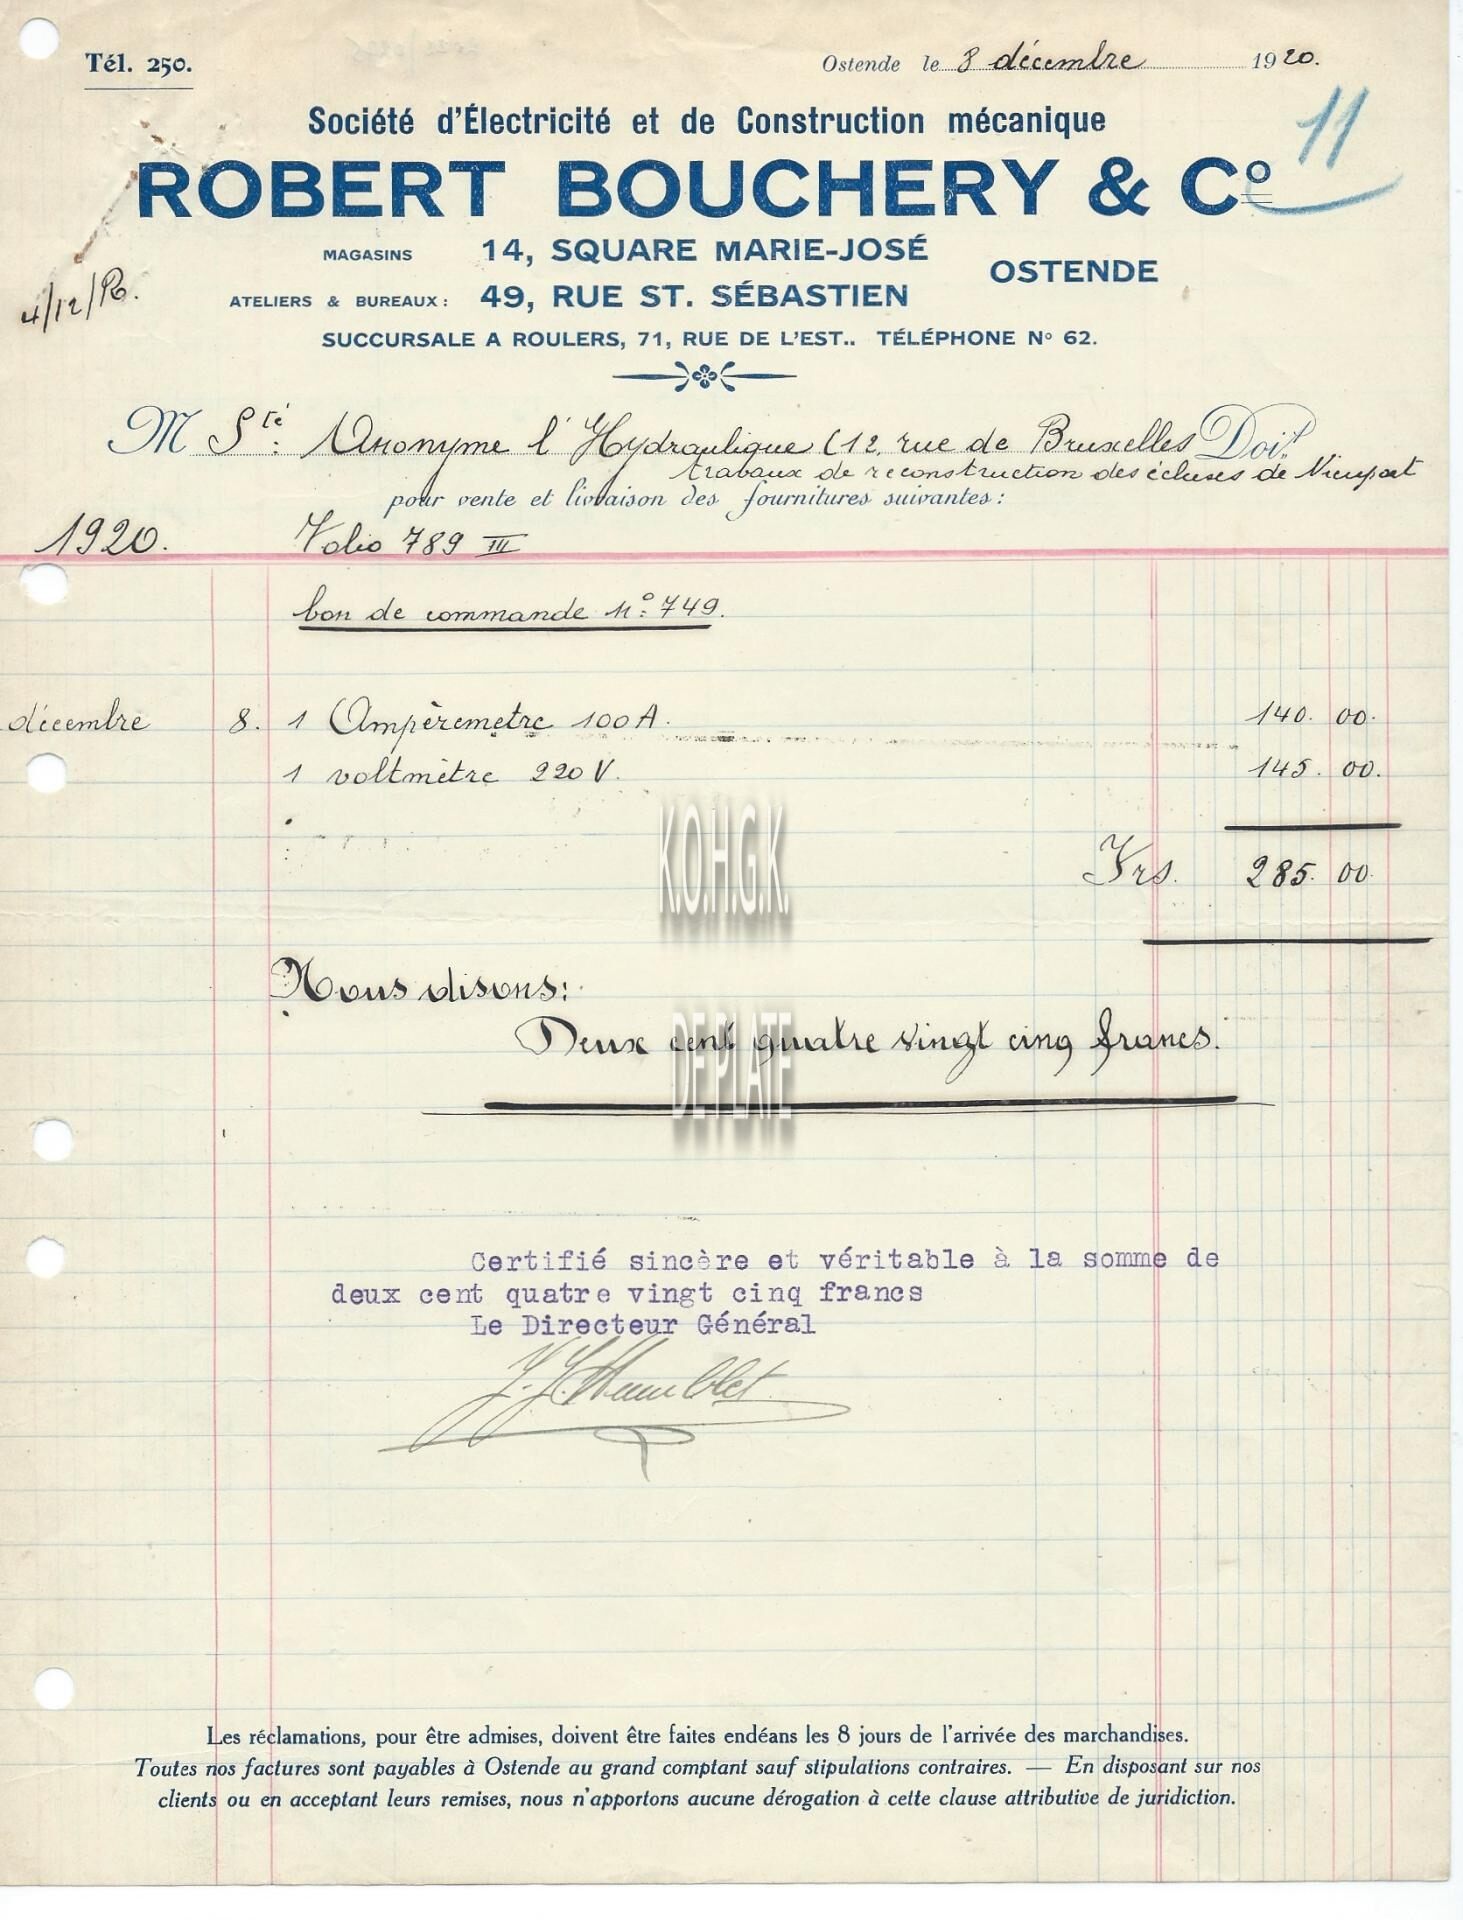 Tél. 250.
Ostende le 8 décembre 1920.
11
Société d'Électricité et de Construction mécanique
ROBERT BOUCHERY & Cº
MAGASINS 14, SQUARE MARIE-JOSÉ
OSTENDE
ATELIERS & BUREAUX: 49, RUE ST. SÉBASTIEN
4/12/
SUCCURSALE A ROULERS, 71, RUE DE L'EST.. TÉLÉPHONE Nº 62.
M Sté: Anonyme l'Hydraulique (12, rue de Bruxelles Doit
travaux de reconstruction des écluses de Nieuport
pour vente et livraison des fournitures suivantes:
1920. Folio 789 III
bon de commande nº: 749.
décembre 8. 1 Ampèremetre 100 A. 140. 00.
1 voltmètre 220 V. 145. 00.
Frs. 285. 00.
K.O.H.G.K.
Nous disons:
Deux cent quatre vingt cinq francs.
DE PLATE
Certifié sincère et véritable à la somme de
deux cent quatre vingt cinq francs
Le Directeur Général
J. J. Humblet
Les réclamations, pour être admises, doivent être faites endéans les 8 jours de l'arrivée des marchandises.
Toutes nos factures sont payables à Ostende au grand comptant sauf stipulations contraires. — En disposant sur nos
clients ou en acceptant leurs remises, nous n'apportons aucune dérogation à cette clause attributive de juridiction.